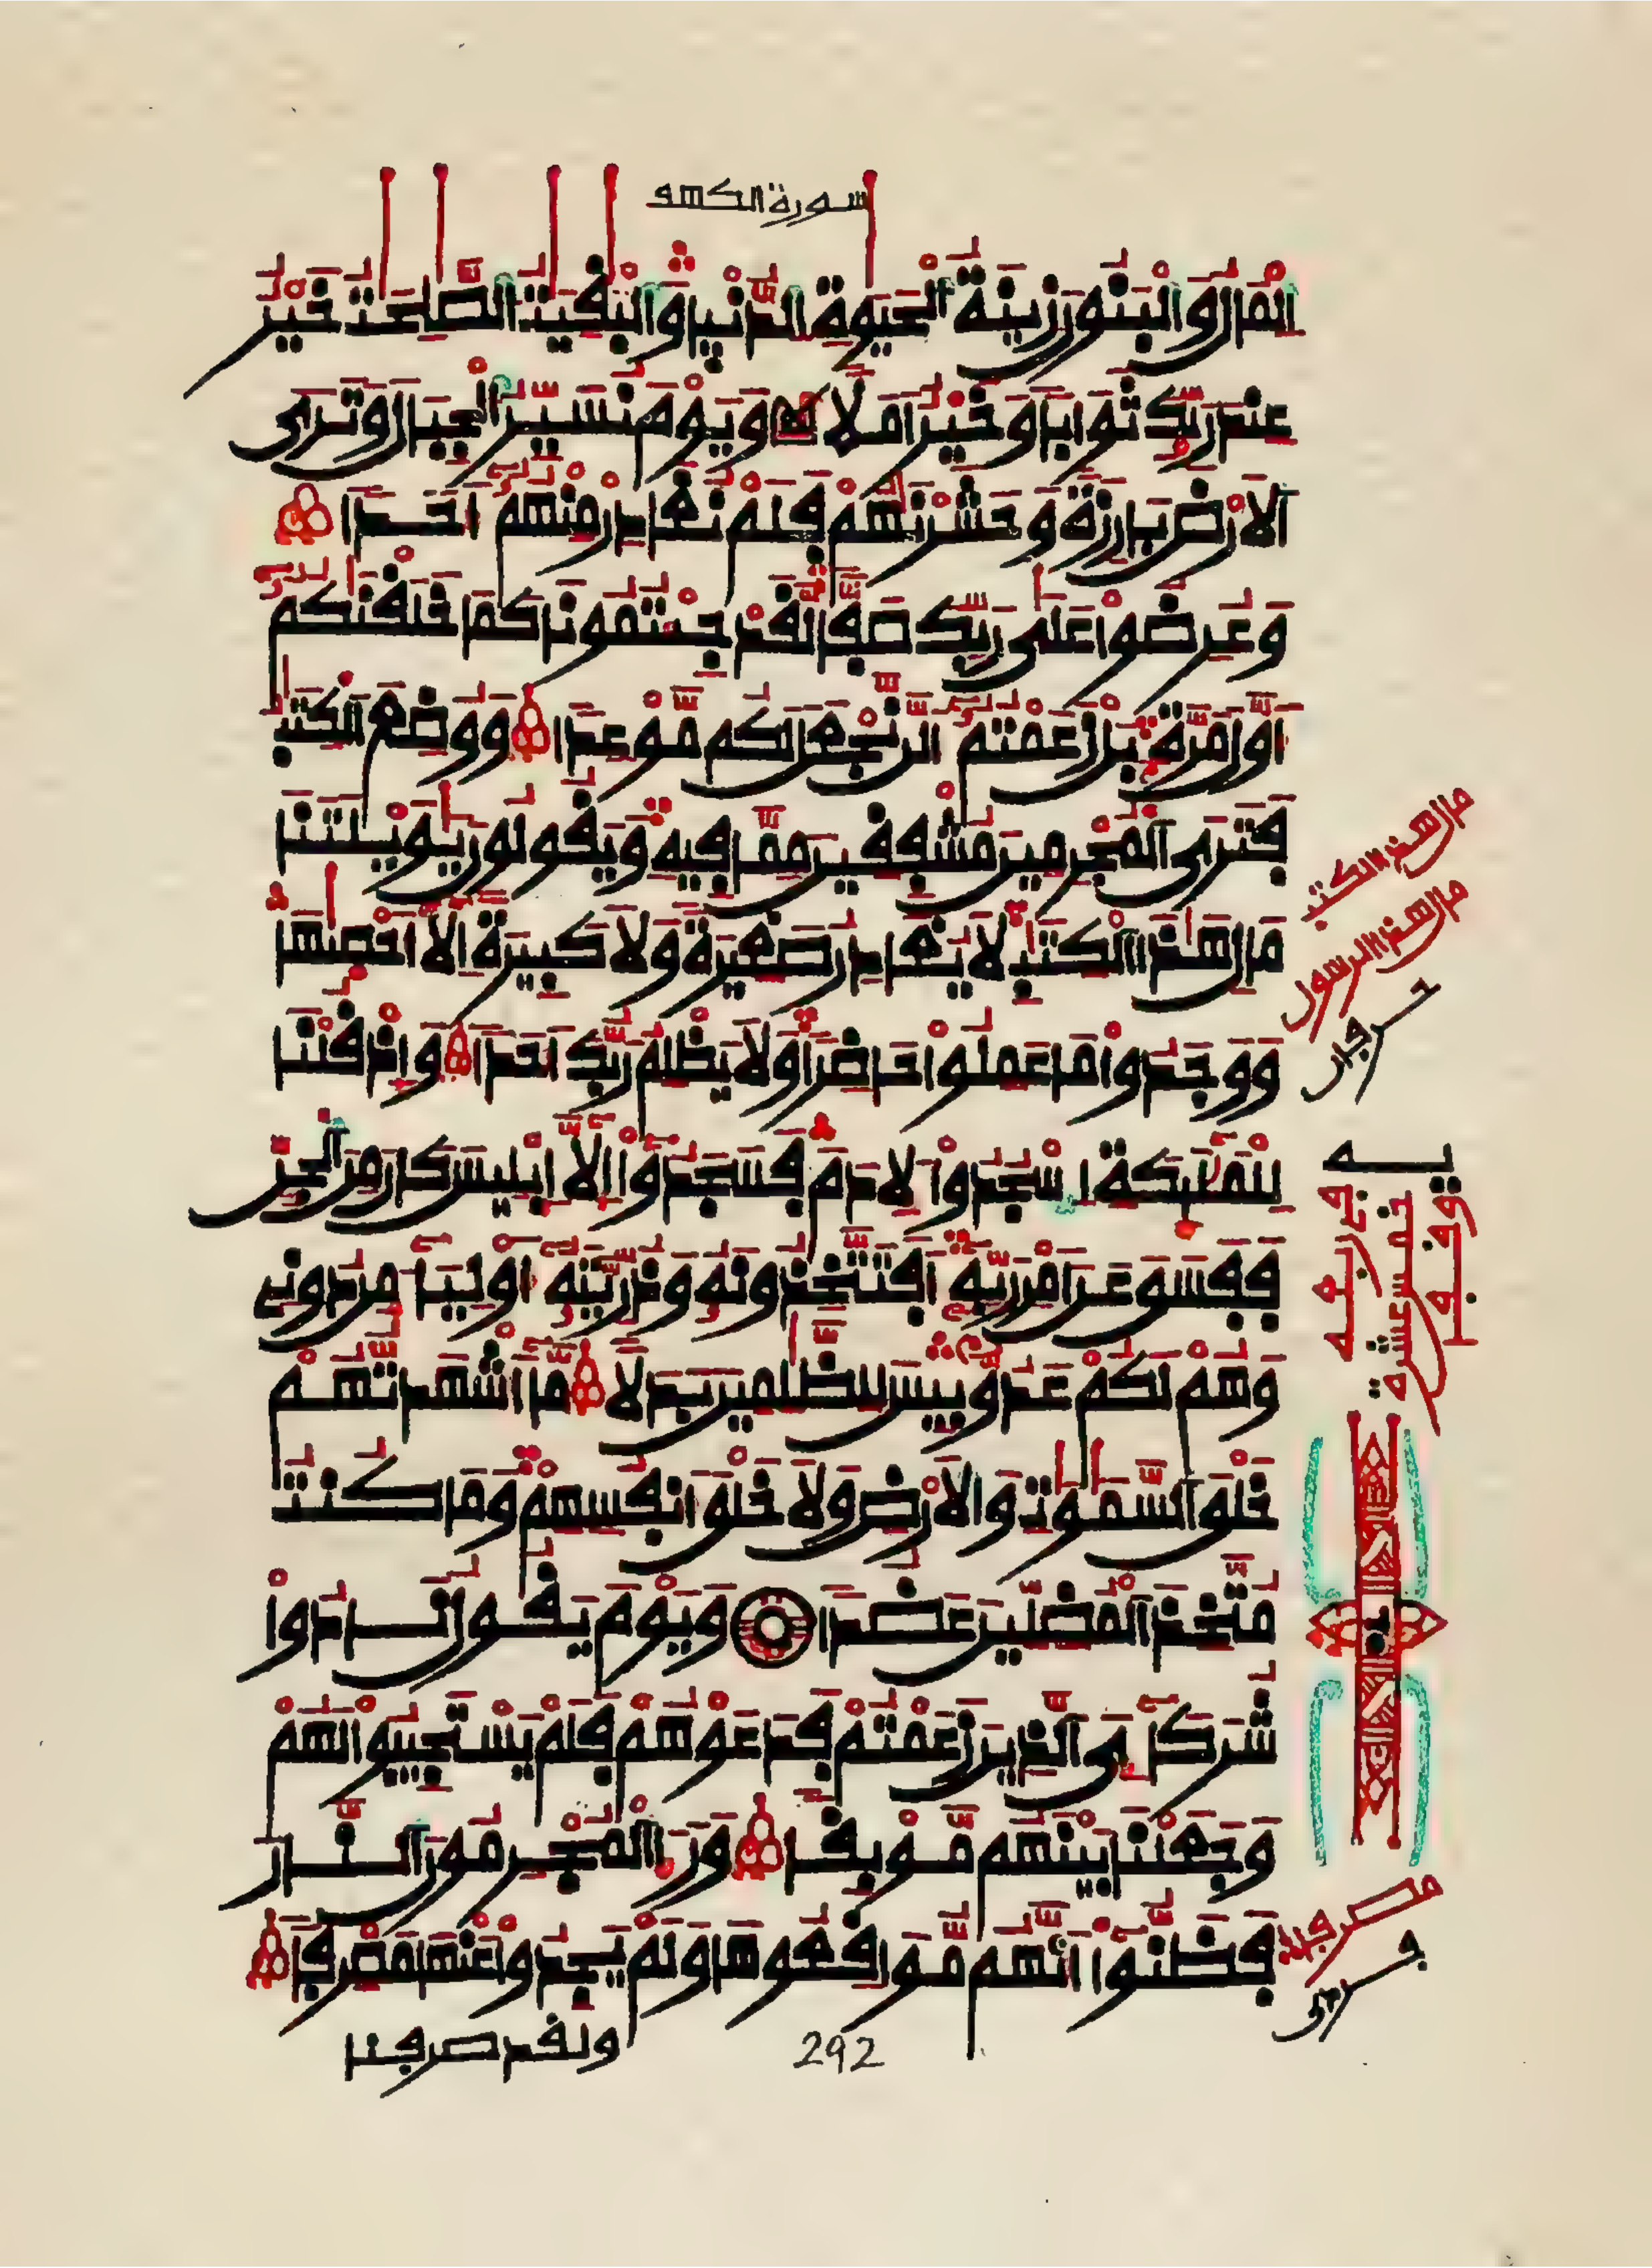 سورة الكهف
المال والبنون زينة الحيوة الدنيا والبقيت الصلحت خير
عند ربك ثوابا وخير املا ويوم نسير الجبال وترى
الارض بارزة وحشرنهم فلم نغادر منهم احدا
وعرضوا على ربك صفا لقد جئتمونا كما خلقنكم
اول مرة بل زعمتم الن نجعل لكم موعدا ووضع الكتب
فترى المجرمين مشفقين مما فيه ويقولون يويلتنا
مال هذا الكتب لا يغادر صغيرة ولا كبيرة الا احصيها
ووجدوا ما عملوا حاضرا ولا يظلم ربك احدا واذ قلنا
للمليكة اسجدوا لادم فسجدوا الا ابليس كان من الجن
ففسق عن امر ربه افتتخذونه وذريته اوليا من دونى
وهم لكم عدو بيس للظلمين بدلا ما اشهدتهم
خلق السموت والارض ولا خلق انفسهم وما كنت
متخذ المضلين عضدا ويوم يقول نادوا
شركاءى الذين زعمتم فدعوهم فلم يستجيبوا لهم
وجعلنا بينهم موبقا ورا المجرمون النار
فظنوا انهم مواقعوها ولم يجدوا عنها مصرفا
ولقد صرفنا
292
مال هذا الكتب
مال هذا الرسول
خمس عشرة
مصرفا